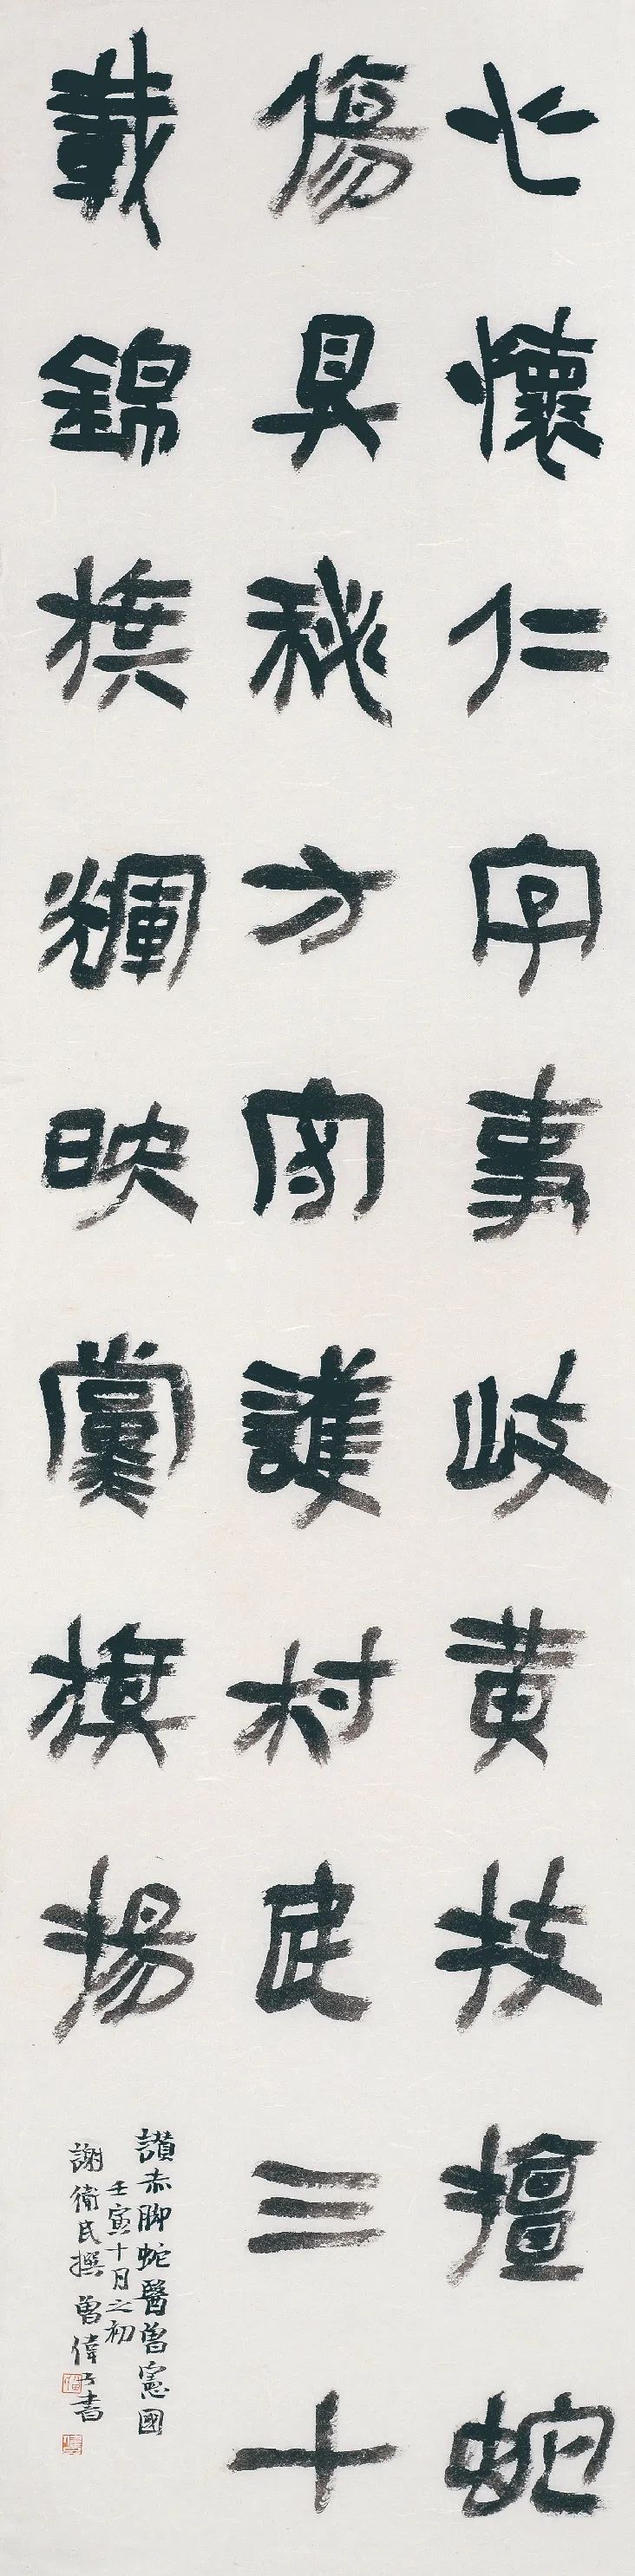 心懷仁字事岐黄技擅蛇
傷具秘方守護村民三十
載錦旗輝映黨旗揚
讃赤脚蛇醫曾憲國
壬寅十月之初
謝衛民撰 曾偉書